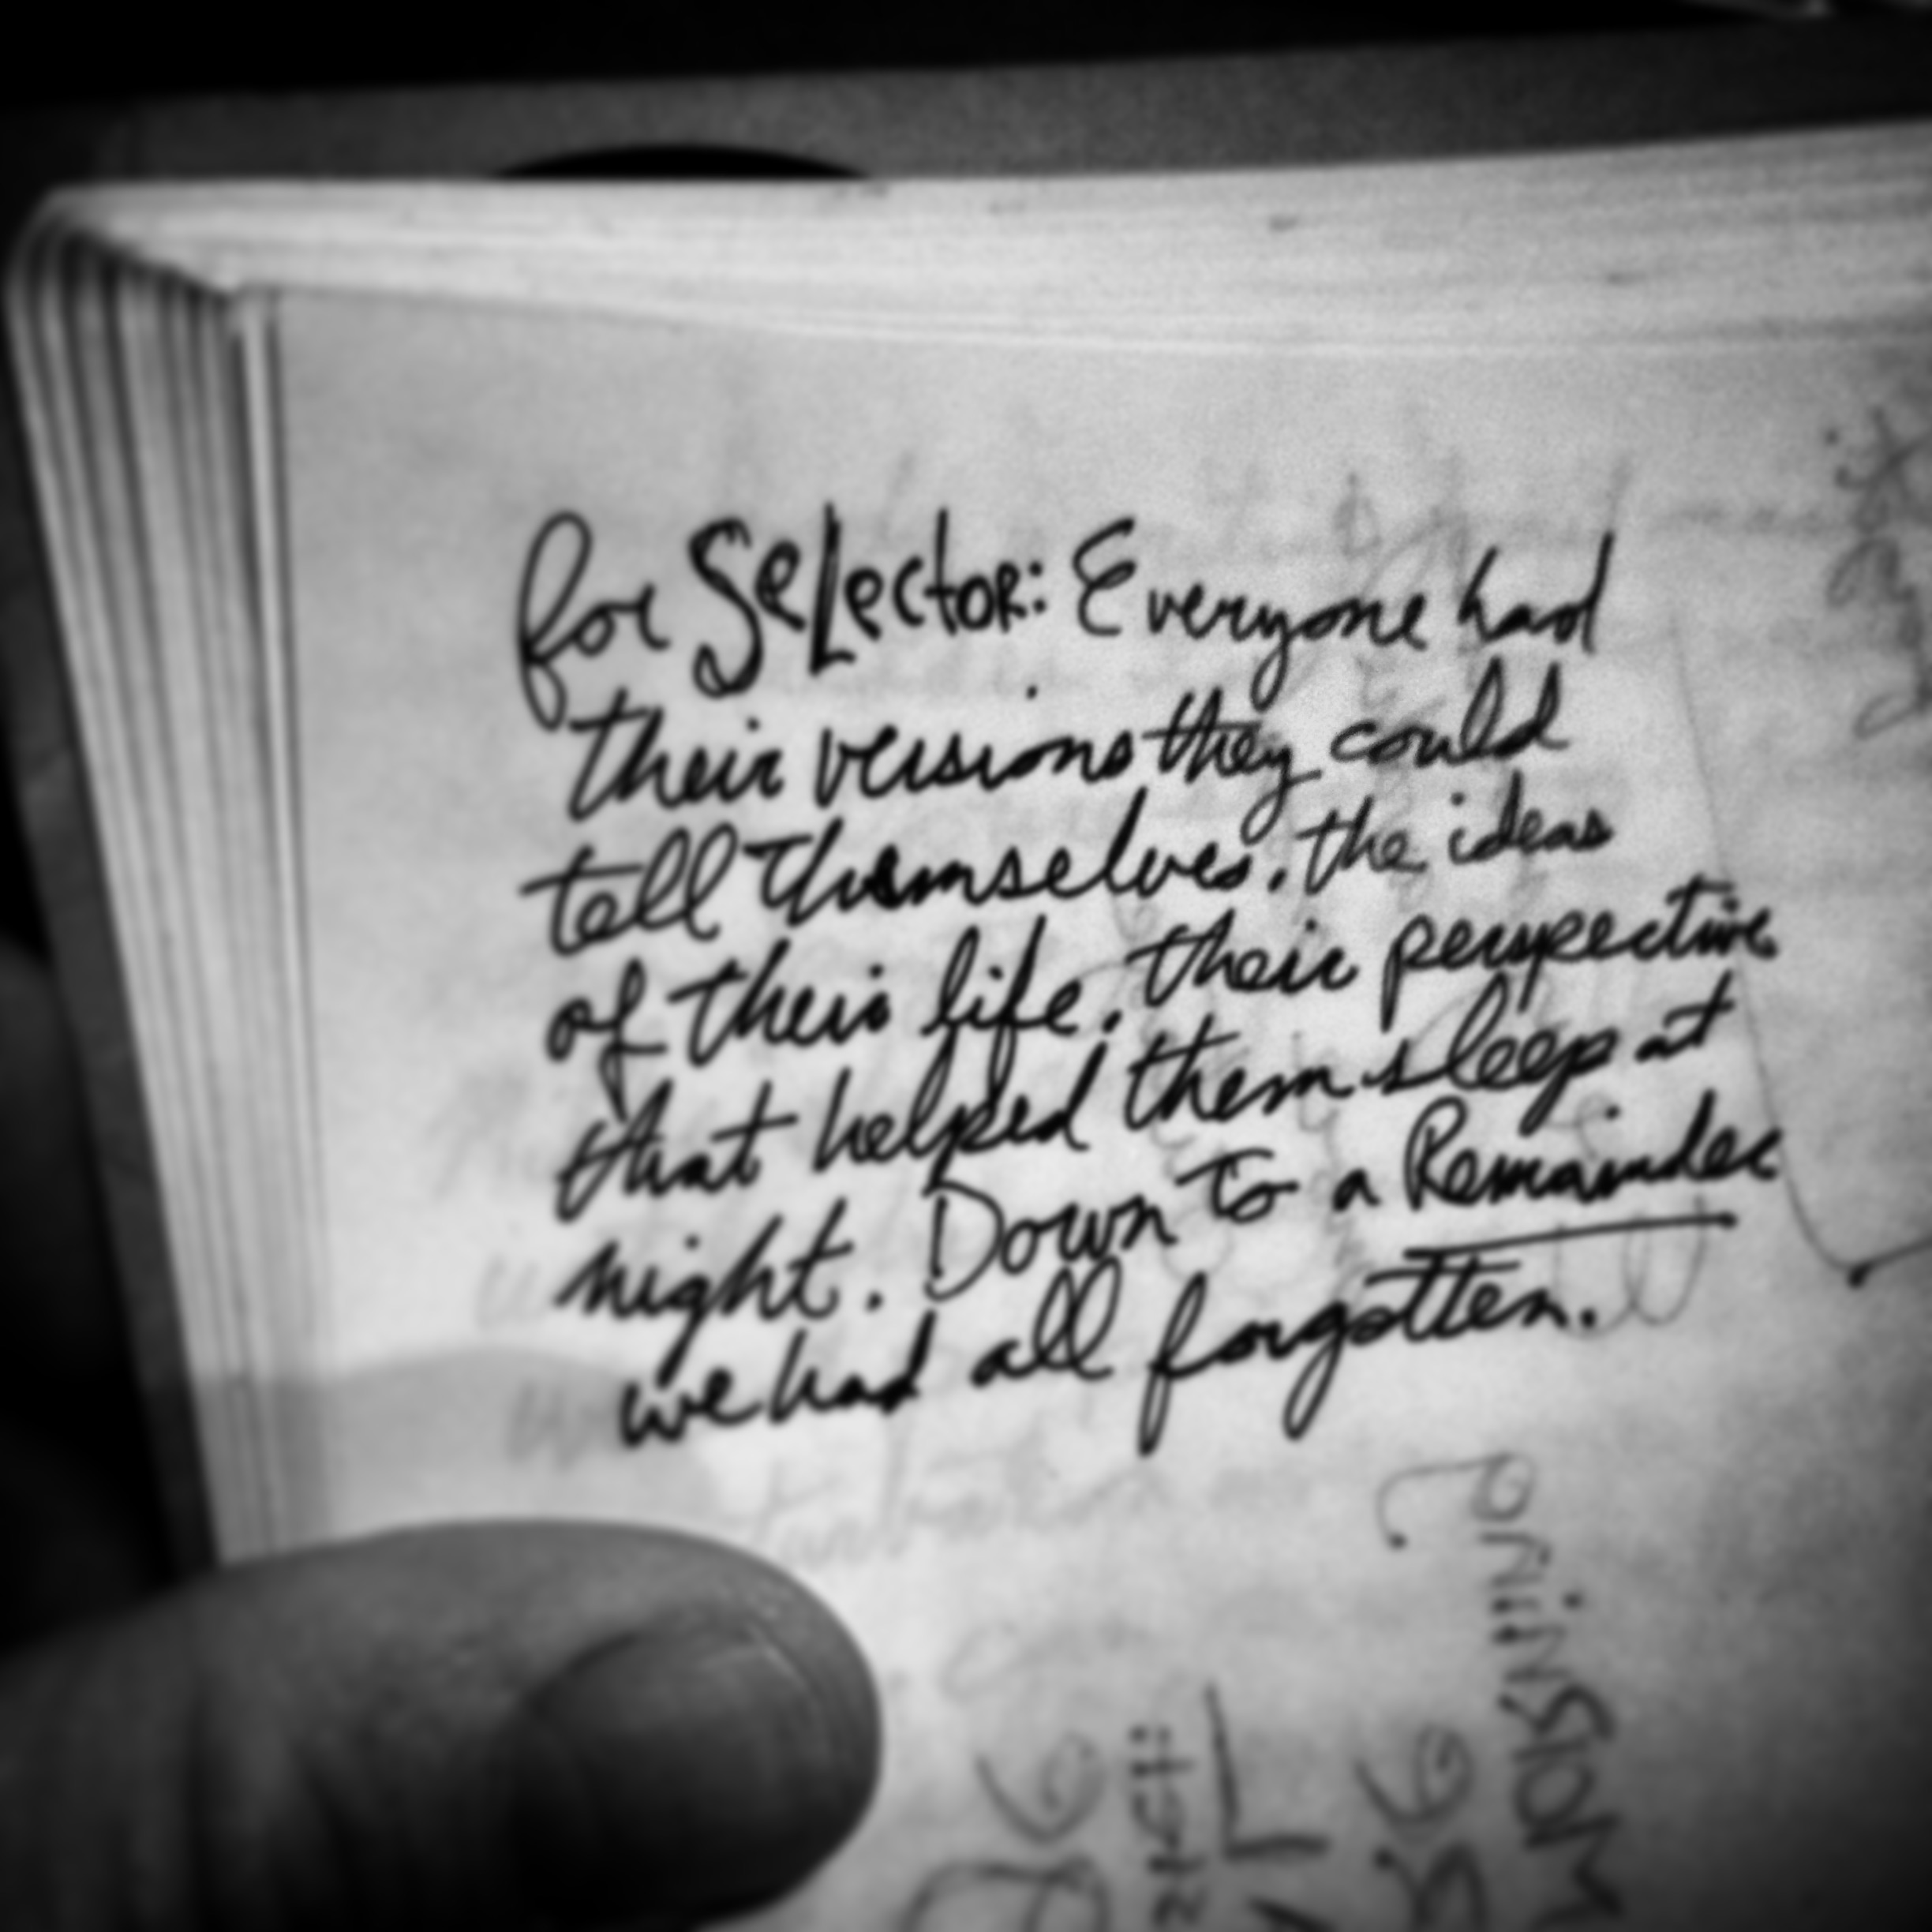 for SeLector: Everyone had
their versions they could
tell themselves, the ideas
of their life, their perspective
that helped them sleep at
night. Down to a Remainder
we had all forgotten.
it